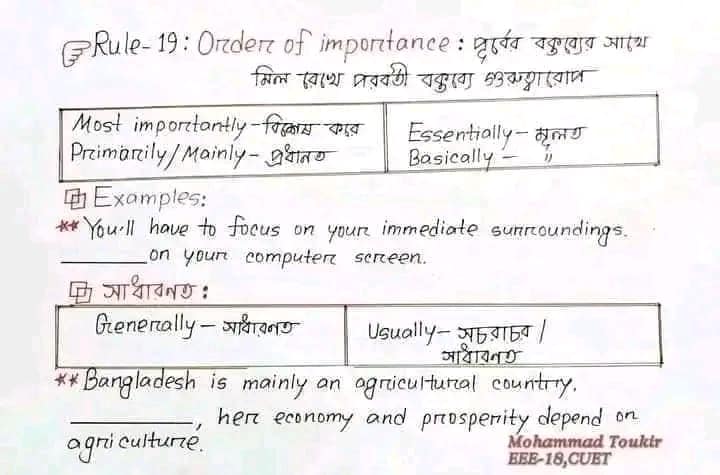 Rule-19: Order of importance: পূর্বের বক্তব্যের সাথে
মিল রেখে পরবর্তী বক্তব্যে গুরুত্বারোপ
Most importantly - বিশেষ করে
Primarily/Mainly - প্রধানত
Essentially - মূলত
Basically - "
Examples:
** You'll have to focus on your immediate surroundings.
________ on your computer screen.
সাধারনত:
Generally - সাধারনত
Usually - সচরাচর /
সাধারনত
** Bangladesh is mainly an agricultural country.
____________, her economy and prosperity depend on
agriculture.
Mohammad Toukir
EEE-18,CUET